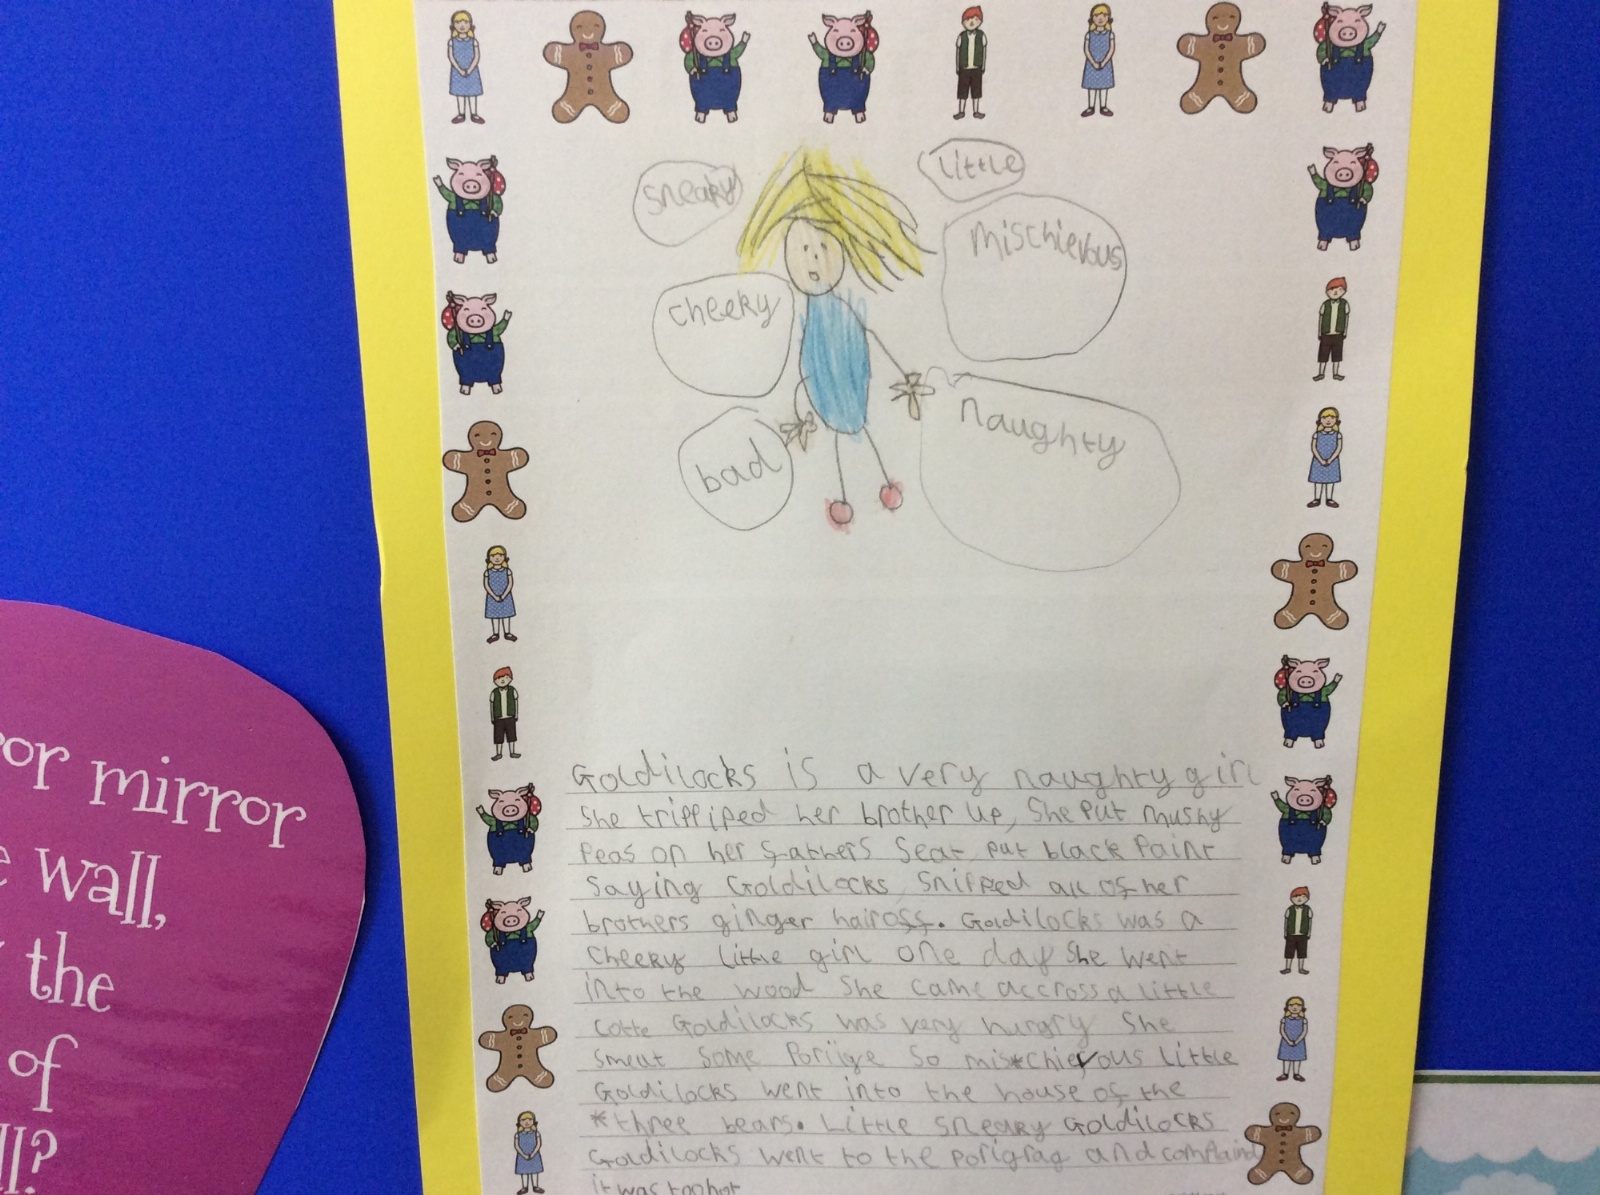 sneaky
little
mischievous
cheeky
naughty
bad
Goldilocks is a very naughty girl
She trippiped her brother up, She put mushy
Peas on her fathers Seat, put black Paint
Saying Goldilocks, Snipped all of her
brothers ginger hair off. Goldilocks was a
cheeky little girl one day She went
into the wood She came accross a little
cotte Goldilocks was very hungry She
smelt some Poriige So mischievous little
Goldilocks went into the house of the
*three bears. Little Sneaky Goldilocks
Goldilocks went to the porigrag and complaind
it was too hot
or mirror
wall,
the
of
ll?